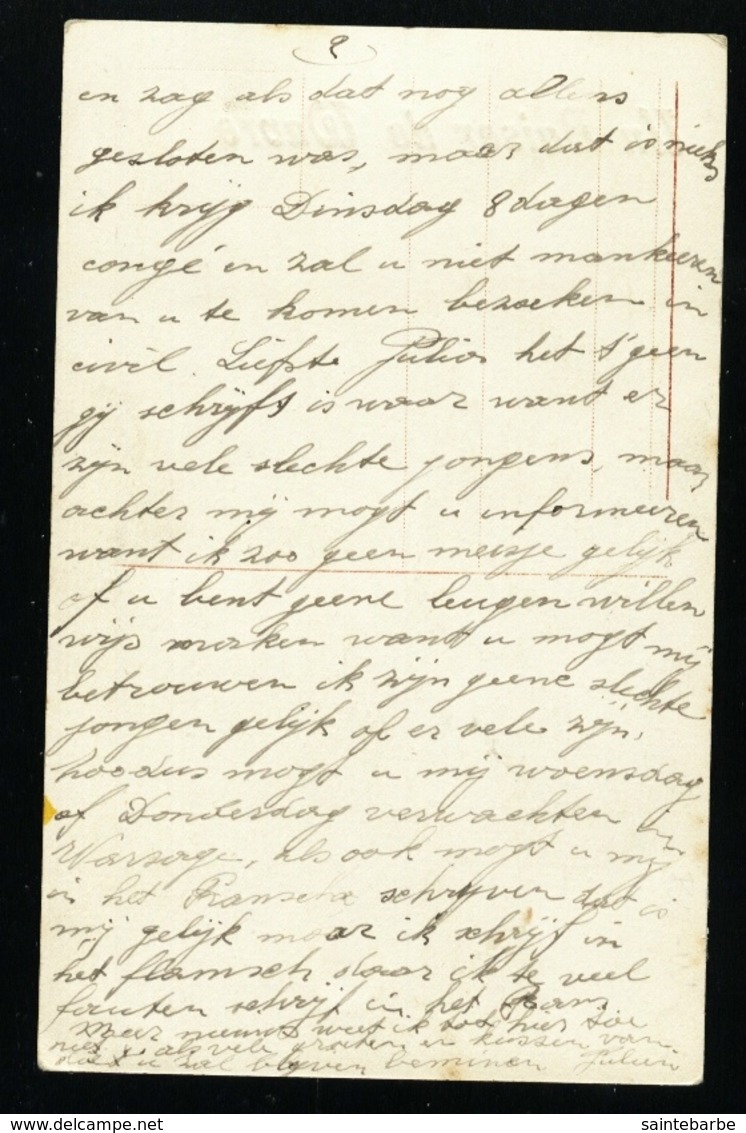 2
en zag als dat nog allens
gesloten was, maar dat is nieks
ik krijg Dinsdag 8 dagen
congé en zal u niet mankeeren
van u te komen bezoeken in
civil. Liefste Julia het t'geen
gij schrijft is waar want er
zijn vele slechte jongens, maar
achter mij mogt u informeeren
want ik zoo geen meisje gelijk
of u bent geene leugen willen
wijs maken want u mogt mij
betrouwen ik zijn geene slechte
jongen gelijk of er vele zijn,
zoodus mogt u mij woensdag
of Donderdag verwachten in
Warsage, als ook mogt u mij
in het Fransch schrijven dat is
mij gelijk maar ik schrijf in
het flamsch daar ik te veel
fauten schrijf in het Frans
Meer nieuws weet ik tot hier toe
niet als vele groeten en kussen van
u zal blijven beminen Julien
saintebarbe